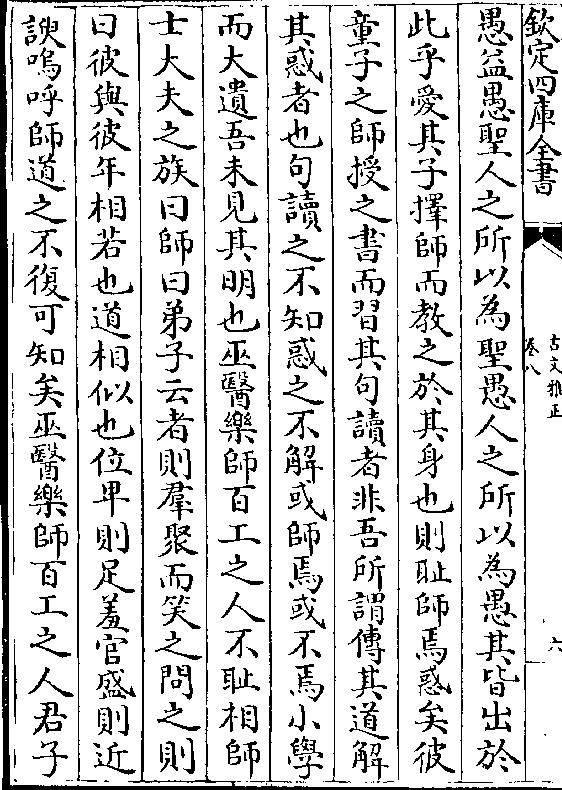 欽定四庫全書
古文雅正
卷八
六
愚益愚聖人之所以為聖愚人之所以為愚其皆出於
此乎愛其子擇師而教之於其身也則耻師焉惑矣彼
童子之師授之書而習其句讀者非吾所謂傳其道解
其惑者也句讀之不知惑之不解或師焉或不焉小學
而大遺吾未見其明也巫醫樂師百工之人不耻相師
士大夫之族曰師曰弟子云者則羣聚而笑之問之則
曰彼與彼年相若也道相似也位卑則足羞官盛則近
諛嗚呼師道之不復可知矣巫醫樂師百工之人君子